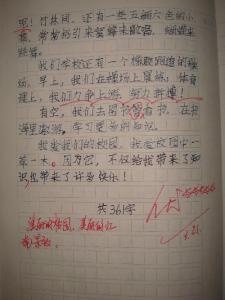 吧！竹林间，还有一些五颜六色的小
花，常常吸引来蜜蜂来歌唱，蝴蝶来
跳舞。
我们学校还有一个橡胶跑道的操
场，早上，我们在操场上晨练，体育
课上，我们力争上游，努力拼搏！
有空，我们去图书馆看书，在书
海里遨游，学习更多的知识。
我爱我们的校园，我爱校园中一
草一木。因为它，不仅给我带来了知
识也带来了许多快乐！
共361字
美丽的校园，美丽的
9.21.